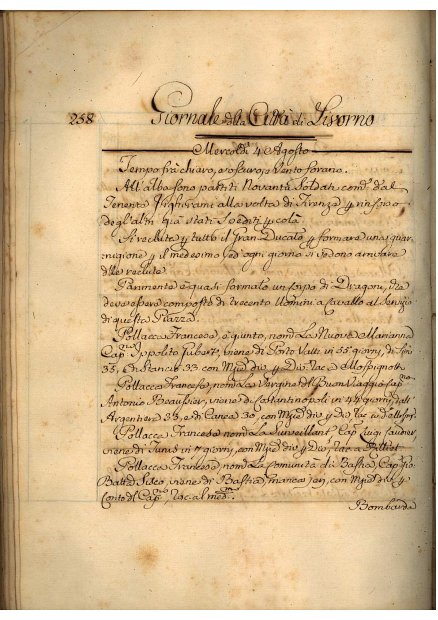 258 Giornale della Città di Livorno
Mercoldì 4 Agosto
Tempo frà chiaro, e oscuro, e Vento forano.
All'alba sono partiti Novanta Soldati com: dal
Tenente alla volta di Firenze p rinforzo
degl'altri già stati spediti p colà.
Si reclute p tutto il Gran Ducato p formare una guar
nigione p il medesimo ed ogni giorno si vedono arrivare
delle reclute.
Parimente è quasi formato un corpo di Dragoni, che
deve essere composto di trecento Uomini a cavallo al servizio
di questa Piazza.
Pollacca Francese, è giunto, nom: La Nuova Marianna
Cap: Ippolito Jubert, viene di Porto Vatti in 55 giorni, di
35, 33 con M div: p Div:
Pollacca Francese, nom: La Vergine del Buon Viaggio Cap:
Antonio Beaussier, viene di Costantinopoli in 44 giorni, dell'
Argentiera 33, e di Canea 30, con M div: p Div:
Pollacca Francese nom: La Surveillant, Cap: Luigi
viene di Tunis in giorni, con M div: p Div:
Pollacca Francese, nom: La Comunità di Bastia, Cap: Gio:
Batta Sisco, viene di Bastia, manca jeri, con M div: p
Conto del Cap:, rac: al med:
Bombarda